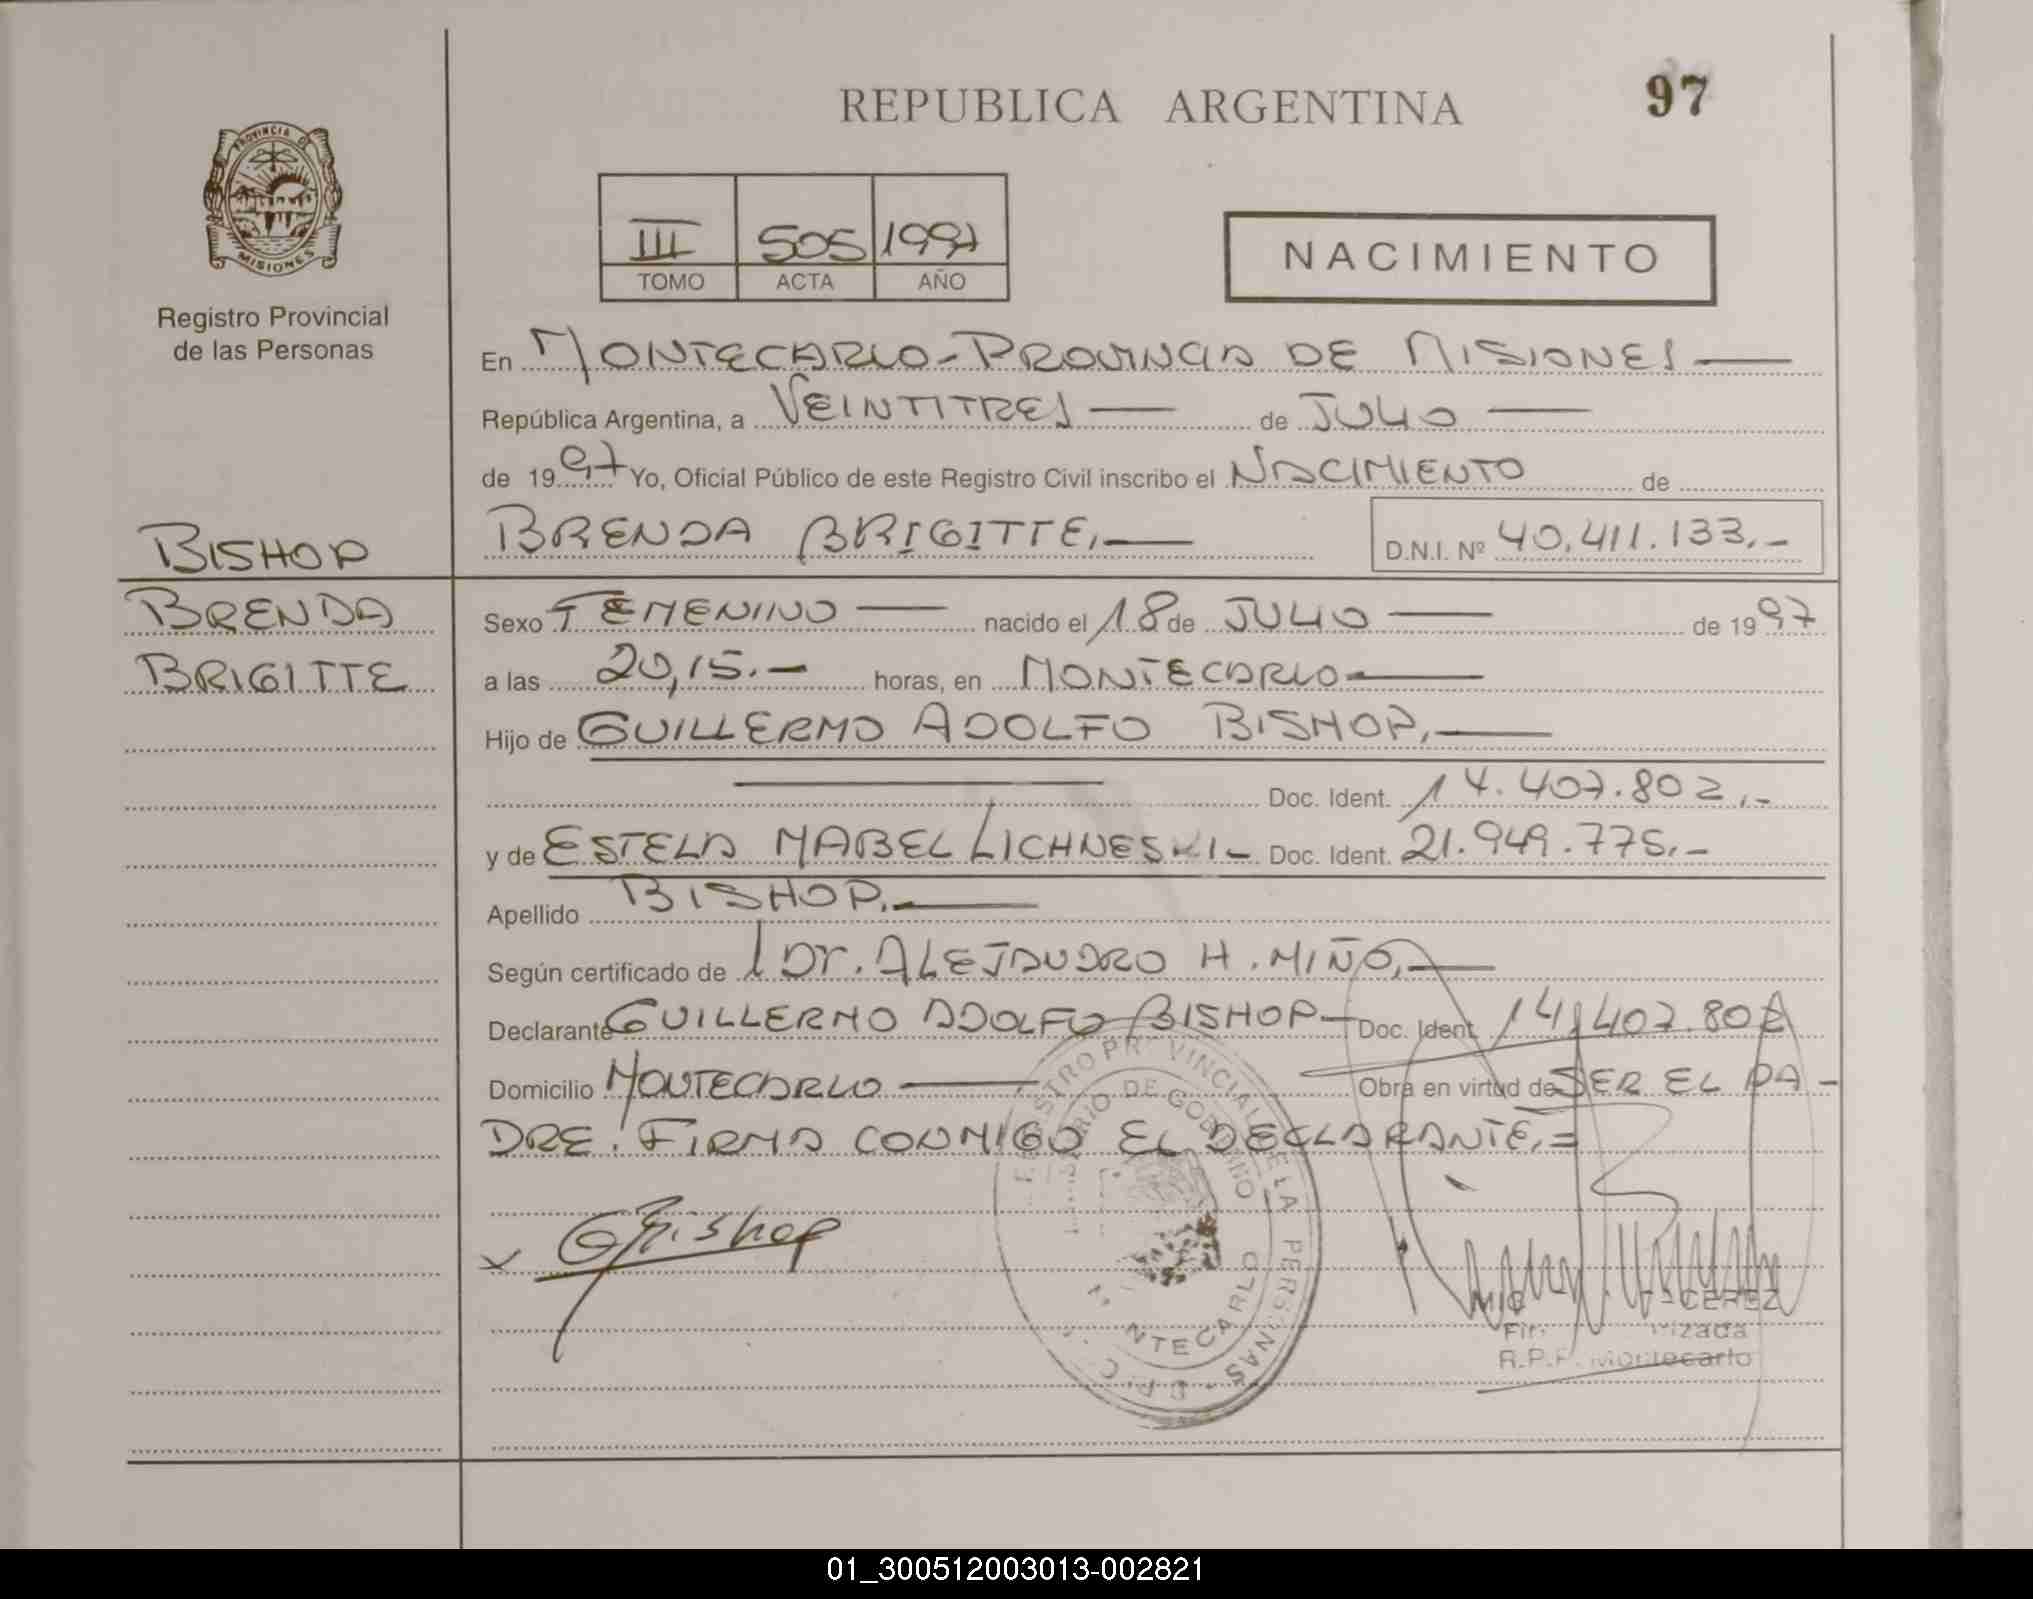 REPUBLICA ARGENTINA
97
PROVINCIA DE
MISIONES
Registro Provincial
de las Personas
III 505 1997
TOMO ACTA AÑO
NACIMIENTO
En MONTECARLO - PROVINCIA DE MISIONES
República Argentina, a VEINTITRES de JULIO
de 1997 Yo, Oficial Público de este Registro Civil inscribo el NACIMIENTO de
BRENDA BRIGITTE,— D.N.I. Nº 40.411.133.-
BISHOP
BRENDA
BRIGITTE
Sexo FEMENINO nacido el 18 de JULIO de 1997
a las 20,15.- horas, en MONTECARLO
Hijo de GUILLERMO ADOLFO BISHOP.
Doc. Ident. 14.407.802.-
y de ESTELA MABEL LICHNESKI- Doc. Ident. 21.949.775.-
Apellido BISHOP.
Según certificado de Dr. ALEJANDRO H. MIÑO,
Declarante GUILLERMO ADOLFO BISHOP Doc. Ident. 14.407.802
Domicilio MONTECARLO Obra en virtud de SER EL PA-
DRE. FIRMA CONMIGO EL DECLARANTE.=
x GBishop
REGISTRO PROVINCIAL DE LAS PERSONAS
MINISTERIO DE GOBIERNO
MONTECARLO
CEREZ
R.P.P. Montecarlo
01_300512003013-002821